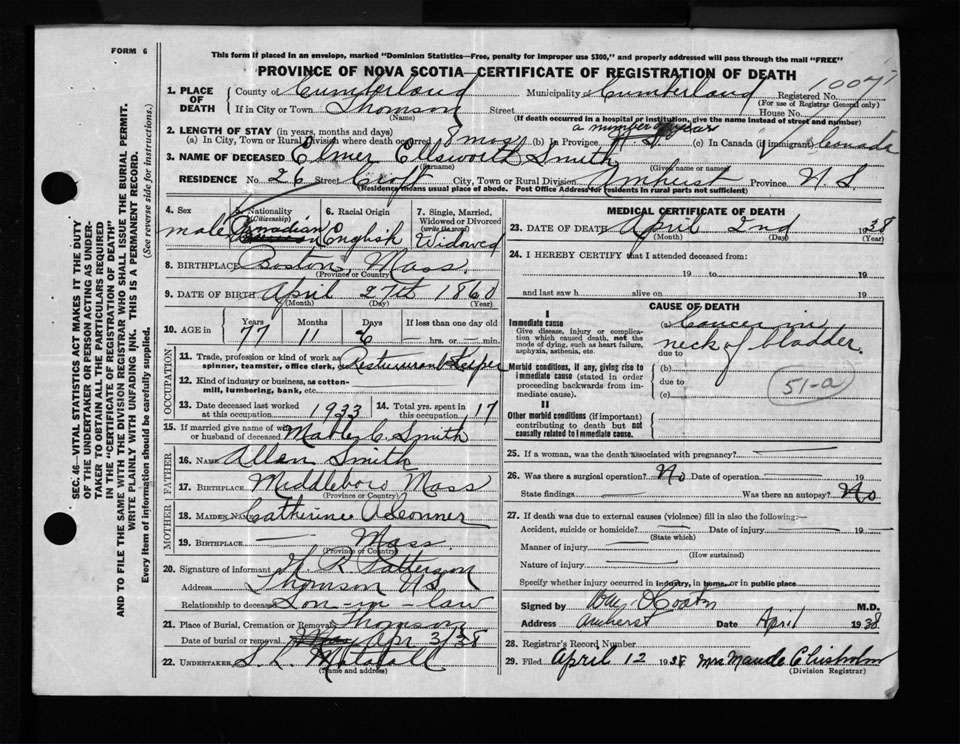 FORM 6
This form if placed in an envelope, marked "Dominion Statistics—Free, penalty for improper use $300," and properly addressed will pass through the mail "FREE"
PROVINCE OF NOVA SCOTIA—CERTIFICATE OF REGISTRATION OF DEATH
1007
1. PLACE OF DEATH
County of Cumberland Municipality of Cumberland Registered No.
(For use of Registrar General only)
If in City or Town Thomson Street House No.
(Name) (If death occurred in a hospital or institution, give the name instead of street and number)
2. LENGTH OF STAY (in years, months and days)
a number of years
(a) In City, Town or Rural Division where death occurred 8 mos (b) In Province N.S. (c) In Canada (if immigrant) Canada
3. NAME OF DECEASED Elmer Ellsworth Smith
(Surname) (Given name or names)
RESIDENCE No. 26 Street Croft City, Town or Rural Division Amherst Province N S
(Residence means usual place of abode. Post Office Address for residents in rural parts not sufficient)
4. Sex male
5. Nationality (Citizenship) Canadian
6. Racial Origin English
7. Single, Married, Widowed or Divorced (write the word) Widowed
8. BIRTHPLACE Boston, Mass.
(Province or Country)
9. DATE OF BIRTH April 27th 1860
(Month) (Day) (Year)
10. AGE in Years Months Days If less than one day old
77 11 6 hrs. or min.
OCCUPATION
11. Trade, profession or kind of work as spinner, teamster, office clerk, etc. Resturarant Keeper
12. Kind of industry or business, as cotton-mill, lumbering, bank, etc.
13. Date deceased last worked at this occupation 1933 14. Total yrs. spent in this occupation 17
15. If married give name of wife or husband of deceased Mabel C. Smith
FATHER
16. NAME Allen Smith
17. BIRTHPLACE Middleboro Mass
(Province or Country)
MOTHER
18. MAIDEN NAME Catherine O'Conner
19. BIRTHPLACE Mass.
(Province or Country)
20. Signature of informant H R Patterson
Address Thomson N S
Relationship to deceased Son-in-law
21. Place of Burial, Cremation or Removal Thomson
Date of burial or removal Apr 3/38
22. UNDERTAKER S. L.
(Name and address)
MEDICAL CERTIFICATE OF DEATH
23. DATE OF DEATH April 2nd 1938
(Month) (Day) (Year)
24. I HEREBY CERTIFY that I attended deceased from:
19 to 19
and last saw h alive on 19
CAUSE OF DEATH
I
Immediate cause
Give disease, injury or complication which caused death, not the mode of dying, such as heart failure, asphyxia, asthenia, etc.
(a) Cancer in
neck of bladder.
due to
Morbid conditions, if any, giving rise to immediate cause (stated in order proceeding backwards from immediate cause).
(b)
due to
(c)
51-a
II
Other morbid conditions (if important) contributing to death but not causally related to immediate cause.
25. If a woman, was the death associated with pregnancy?
26. Was there a surgical operation? No Date of operation 19
State findings Was there an autopsy? No
27. If death was due to external causes (violence) fill in also the following:—
Accident, suicide or homicide? Date of injury 19
(State which)
Manner of injury
(How sustained)
Nature of injury
Specify whether injury occurred in industry, in home, or in public place
Signed by M.D.
Address Amherst Date April 1938
28. Registrar's Record Number
29. Filed April 12 1938 Mrs Maude Chisholm
(Division Registrar)
SEC. 46—VITAL STATISTICS ACT MAKES IT THE DUTY
OF THE UNDERTAKER OR PERSON ACTING AS UNDER-
TAKER TO OBTAIN ALL THE PARTICULARS REQUIRED
IN THE "CERTIFICATE OF REGISTRATION OF DEATH"
AND TO FILE THE SAME WITH THE DIVISION REGISTRAR WHO SHALL ISSUE THE BURIAL PERMIT.
WRITE PLAINLY WITH UNFADING INK. THIS IS A PERMANENT RECORD.
Every item of information should be carefully supplied. (See reverse side for instructions.)